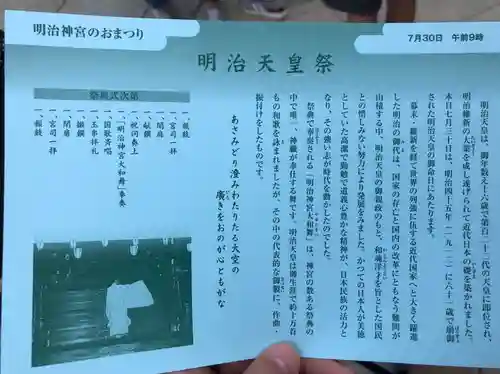 明治神宮のおまつり
7月30日 午前9時
明治天皇祭
明治天皇は、御年数え十六歳で第百二十二代の天皇に即位され、
明治維新の大業を成し遂げられて近代日本の礎を築かれました。
本日七月三十日は、明治四十五年(一九一二)に六十一歳で崩御
された明治天皇の御命日にあたります。
幕末・維新を経て世界の列強に伍する近代国家へと大きく躍進
した明治の御代は、国家の存亡と国内の改革にともなう難問が
山積する中、明治天皇の御親政のもと、和魂洋才を旨とした国民
との惜しみない努力により発展をみました。かつての日本人が美徳
としていた高潔で勤勉で道義心豊かな精神が、日本民族の活力と
なり、その強い志が時代を動かしたのでした。
祭典で奉奏される「明治神宮大和舞」は、神宮の数ある祭典の
中で唯一、神職が奉仕する舞です。明治天皇は御生涯で約十万首
もの和歌を詠まれましたが、その中の代表的な御製に、作曲・
振付けをしたものです。
あさみどり澄みわたりたる大空の
廣きをおのが心ともがな
祭典式次第
一、報鼓
一、宮司一拝
一、開扉
一、献饌
一、祝詞奏上
一、「明治神宮大和舞」奉奏
一、国歌斉唱
一、玉串拝礼
一、撤饌
一、閉扉
一、宮司一拝
一、報鼓